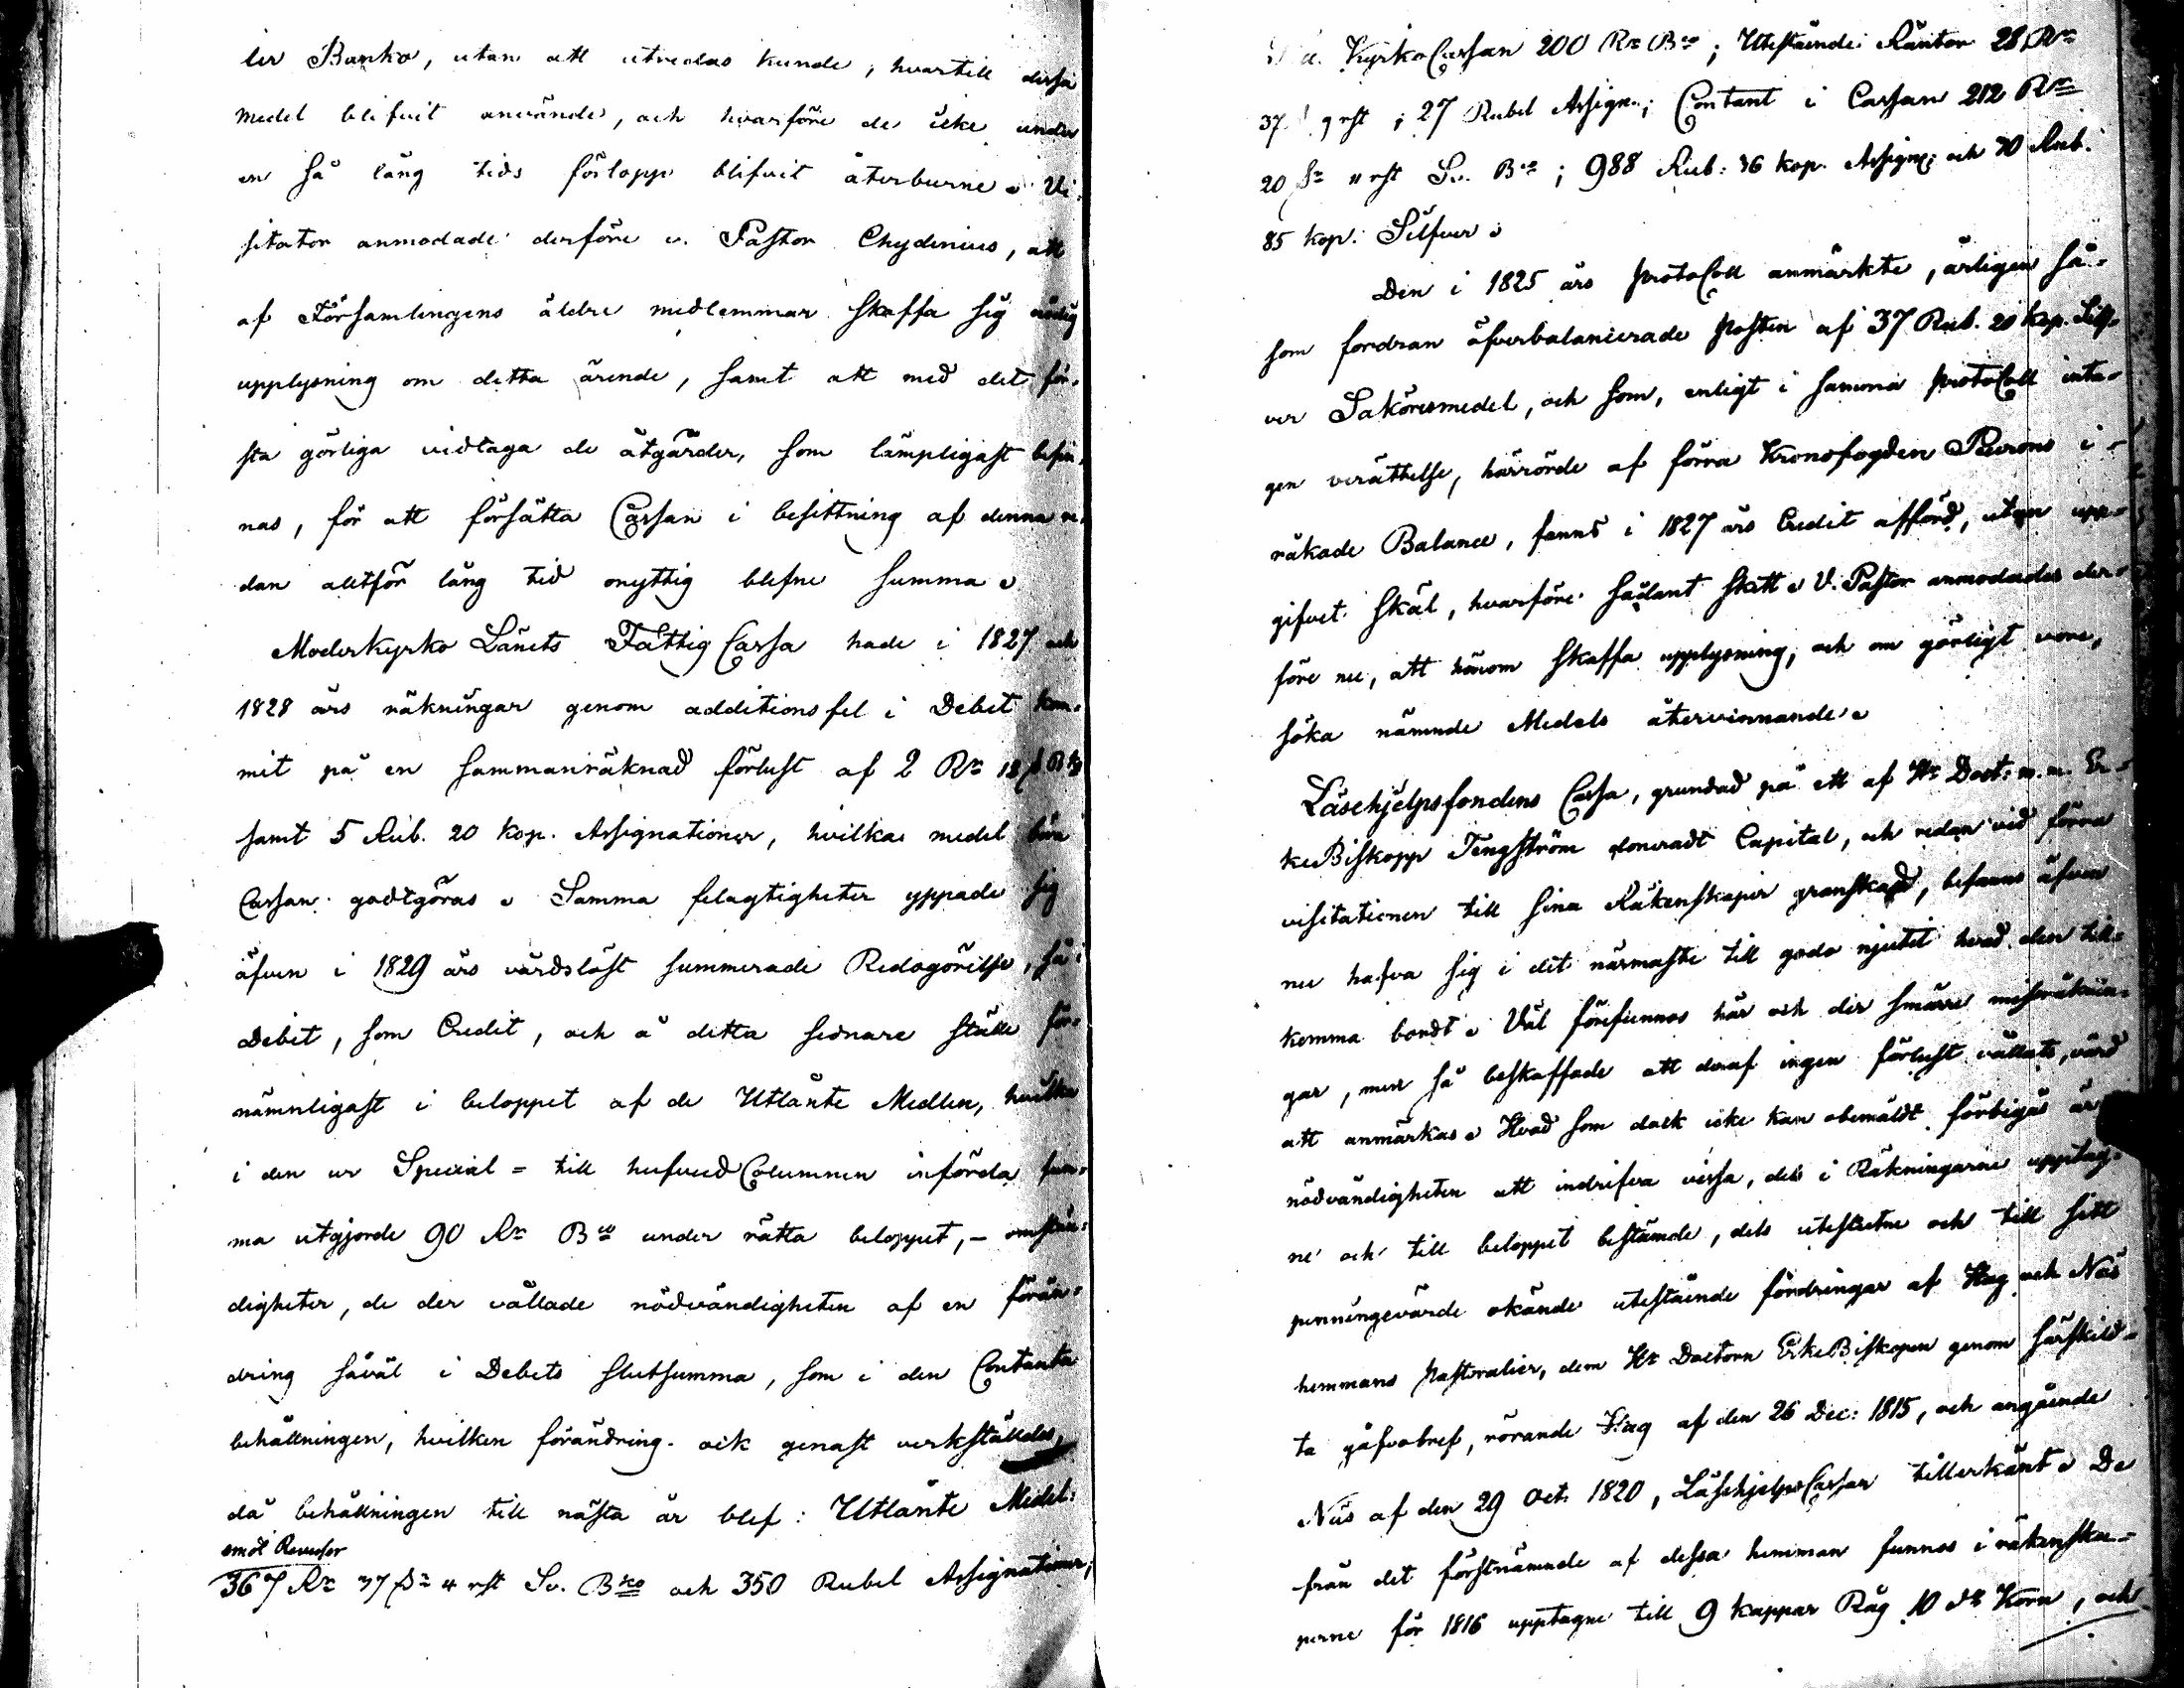 ler Banko, utan att utredas kunde, hvartill dessa
medel blifvit använde, och hvarföre de icke under
en så lång tids förlopp blifvit återburne. Vi-
sitator anmodade derföre v. Pastor Chydenius, att
af Församlingens äldre medlemmar skaffa sig nödig
upplysning om detta ärende, samt att med det för-
sta görliga vidtaga de åtgärder, som lämpligast befin-
nas, för att försätta Cassan i besittning af denna re-
dan alltför lång tid onyttig blefne summa.
Moderkyrko Länets Fattig Cassa hade i 1827 och
1828 års räkningar genom additionsfel i Debet kom-
mit på en sammanräknad förlust af 2 Rr 12 ß Bko
samt 5 Rub. 20 kop. Assignationer, hvilka medel böra
Cassan godtgöras. Samma felagtigheter yppade sig
äfven i 1829 års vårdslöst summerade Redogörelse, så i
Debet, som Credit, och å detta sednare ställe för-
nämnligast i beloppet af de Utlånte Medlen, hvilka
i den ur Special- till hufvudColumnen införda sum-
ma utgjorde 90 Rr Bco under rätta beloppet, – omstän-
digheter, de der vållade nödvändigheten af en förän-
dring såväl i Debets slutsumma, som i den Contanta
behållningen, hvilken förändring ock genast verkställdes,
då behållningen till nästa år blef: Utlånte Medel:
emot Reverser
367 Rr 37 ß 4 rst Sv. Bko och 350 Rubel Assignationer;
KyrkoCassan 200 Rr Bco; Utestående Räntor 28 Rr
37 ß 9 rst; 27 Rubel Assign.; Contant i Cassan 212 Rr
20 ß 11 rst Sv. Bco; 988 Rub: 36 kop. Assign; och 70 Rub.
85 kop. Silfver.
Den i 1825 års protocoll anmärkte, årligen så-
som fordran öfverbalancerade posten af 37 Rub. 20 kop. Silf-
ver Saköresmedel, och som, enligt i samma protocoll inta-
gen berättelse, härrörde af förra Kronofogden Peurons i-
råkade Balance, fanns i 1827 års Credit afförd, utan upp-
gifvet skäl, hvarföre sådant skett. V. Pastor anmodades der-
före nu, att härom skaffa upplysning, och om görligt vore,
söka nämnde Medels återvinnande.
Läsehjelpsfondens Cassa, grundad på ett af Hr Doct: m.m. Er-
keBiskopp Tengström doneradt Capital, och redan vid förra
visitationen till sina Räkenskaper granskad, befanns äfven
nu hafva sig i det närmaste till godo njutit hvad den till-
komma bordt. Väl förefunnos här och der smärre missräknin-
gar, men så beskaffade att deraf ingen förlust vållats, värd
att anmärkas. Hvad som dock icke kan obemäldt förbigås är
nödvändigheten att indrifva vissa, dels i Räkningarne upptag-
ne och till beloppet bestämde, dels uteslutne och till sitt
penningevärde okände utestående fordringar af Hag och Näs
hemmans pastoralier, dem Hr Doctorn ErkeBiskopen genom särskild-
ta gåfvobref, rörande Hag af den 26 Dec: 1815, och angående
Näs af den 29 Oct. 1820, LäsehjelpsCassan tillerkänt. De
från det förstnämnde af dessa hemman funnos i räkenska-
perne för 1816 upptagne till 9 kappar Råg 10 do Korn, och